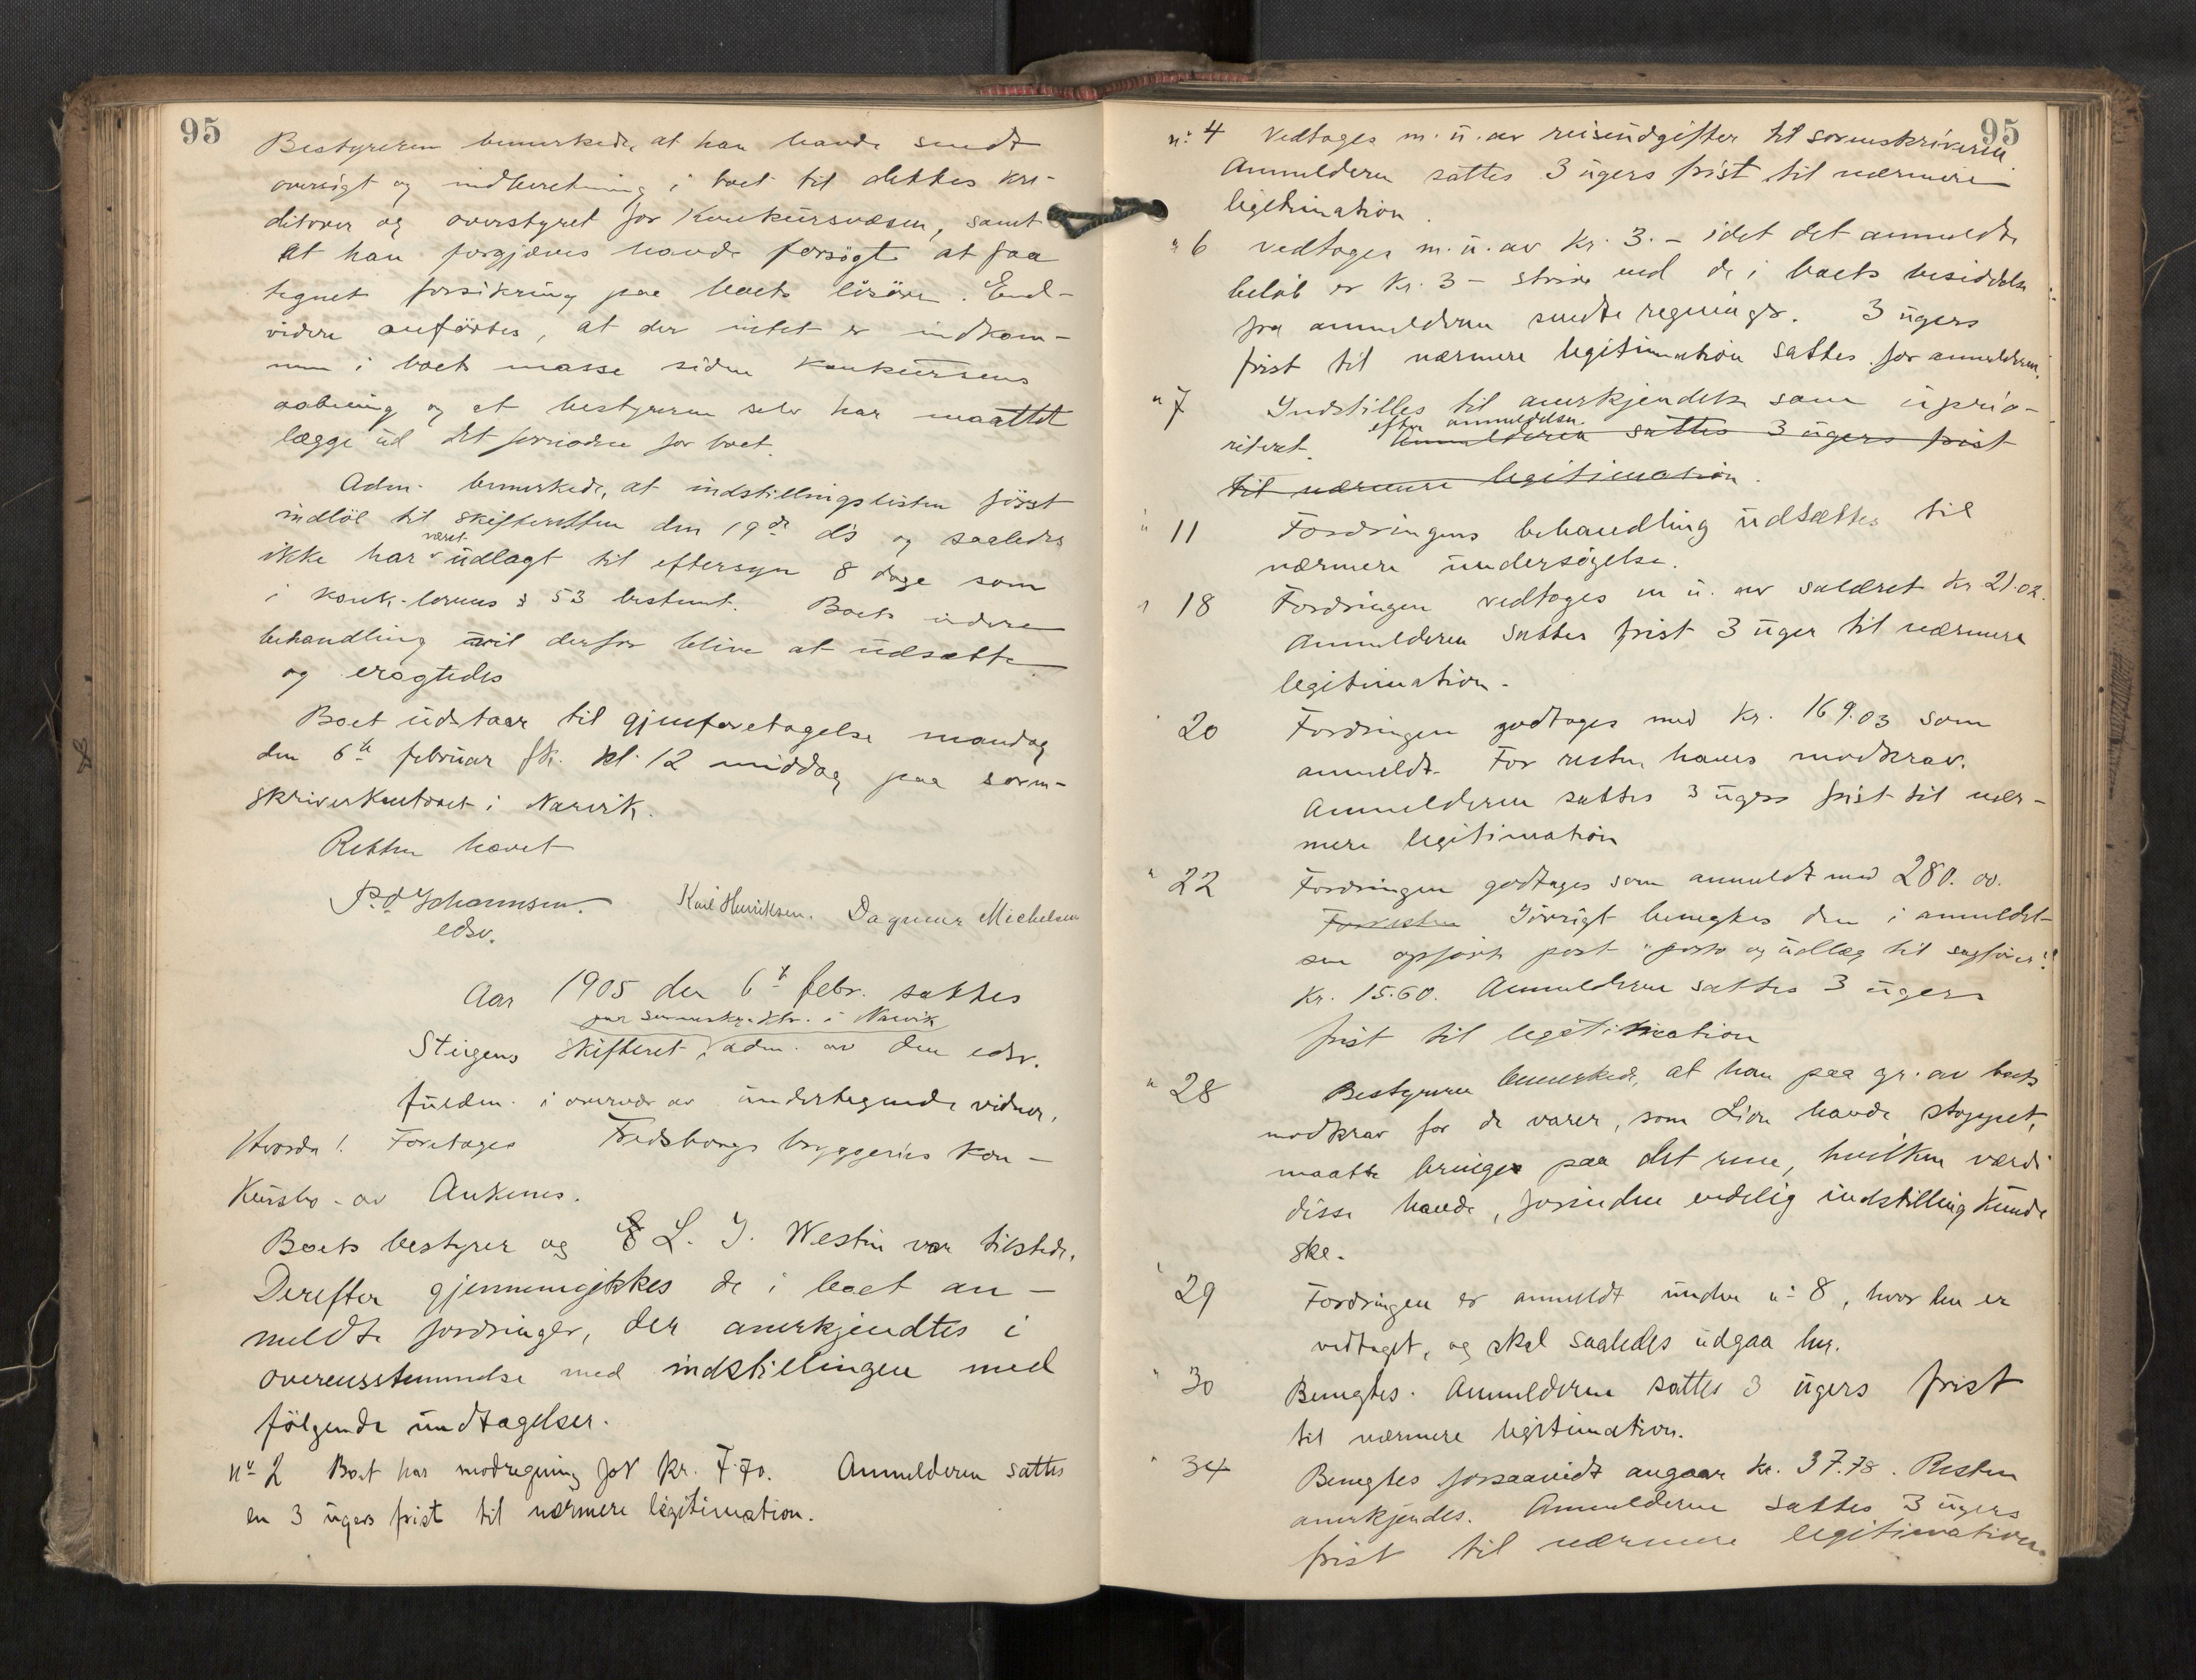 95
Bestyreren bemerkede, at han havde sendt
oversigt og indberetning i boet til dettes kre-
ditorer og overstyret for Konkursvæsen, samt
at han forgjæves havde forsögt at faa
tegnet forsikring paa boets lösöre. End-
videre anförtes, at der intet er indkom-
men i boets masse siden Konkursens
aabning og at bestyreren selv har maattet
lægge ud det fornödne for boet.
Adm. bemerkede, at indstillingslisten först
indlöb til skifteretten den 19de ds og saaledes
ikke har været udlagt til eftersyn 8 dage som
i konk-lovens § 53 bestemt. Boets videre
behandling vil derfor blive at udsætte
og eragtedes
Boet udstaar til gjenforetagelse mandag
den 6te februar fk. kl. 12 middag paa soren-
skriverkontoret i Narvik.
Retten hævet
P. d Johannsen. Karl Henriksen. Dagmar Michelsen
edsv.
Aar 1905 den 6te febr. sattes
paa sorenskr.ktr. i Narvik
Steigens Skifteret, adm. av den edsv.
fuldm. i overvær av undertegnede vidner,
Hvorda 1. Foretages Fredsborgs bryggeries Kon-
Kursbo av Ankenes.
Boets bestyrer og L. J. Westin var tilstede.
Derefter gjennemgikkes de i boet an-
meldte fordringer, der anerkjendtes i
overensstemmelse med indstillingen med
fölgende undtagelser.
No 2 Boet har modregning for kr. 7.70. Anmelderen sattes
en 3 ugers frist til nærmere legitimation.
95
no 4 Vedtages m. u. av reiseudgifter til sorenskriveren
Anmelderen sattes 3 ugers frist til nærmere
legitimation.
" 6 vedtages m. u. av kr. 3.- idet det anmeldte
belöb er kr. 3 - större end de i boets besiddelse
fra anmelderen sendte regninger. 3 ugers
frist til nærmere legitimation sattes for anmelderen.
" 7 Indstilles til anerkjendelse som uprio-
efter anmeldelsen.
riteret. Anmelderen sattes 3 ugers frist
til nærmere legitimation.
" 11 Fordringens behandling udsættes til
nærmere undersögelse.
" 18 Fordringen vedtages m u. av salæret kr 21.02.
Anmelderen sattes frist 3 uger til nærmere
legitimation.
" 20 Fordringen godtages med kr. 169.03 som
anmeldt. For resten haves modkrav.
Anmelderen sattes 3 ugers frist til nær-
mere legitimation
" 22 Fordringen godtages som anmeldt med 280.00.
For resten Iövrigt benegtes den i anmeldel-
sen opförte post "porto og udlæg til sagförer"
kr. 15.60. Anmelderen sattes 3 ugers
frist til legitimation
" 28 Bestyreren bemerkede, at han paa gr. av boets
modkrav for de varer, som Lion havde stoppet,
maatte bringe paa det rene, hvilken værdi
disse havde, forinden endelig indstilling kunde
ske.
" 29 Fordringen er anmeldt under no 8, hvor den er
vedtaget, og skal saaledes udgaa her.
" 30 Benegtes. Anmelderen sattes 3 ugers frist
til nærmere legitimation.
" 34 Benegtes forsaavidt angaar kr. 37.78. Resten
anerkjendes. Anmelderen sattes 3 ugers
frist til nærmere legitimation.